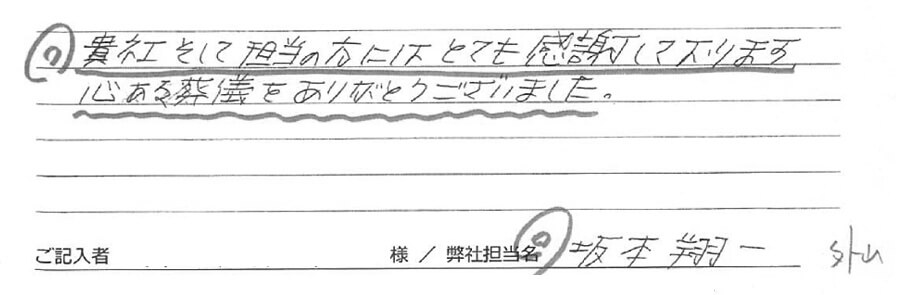 貴社そして担当の方にはとても感謝して下ります
心ある葬儀をありがとうございました。
ご記入者 様 / 弊社担当名 坂本翔一 外山